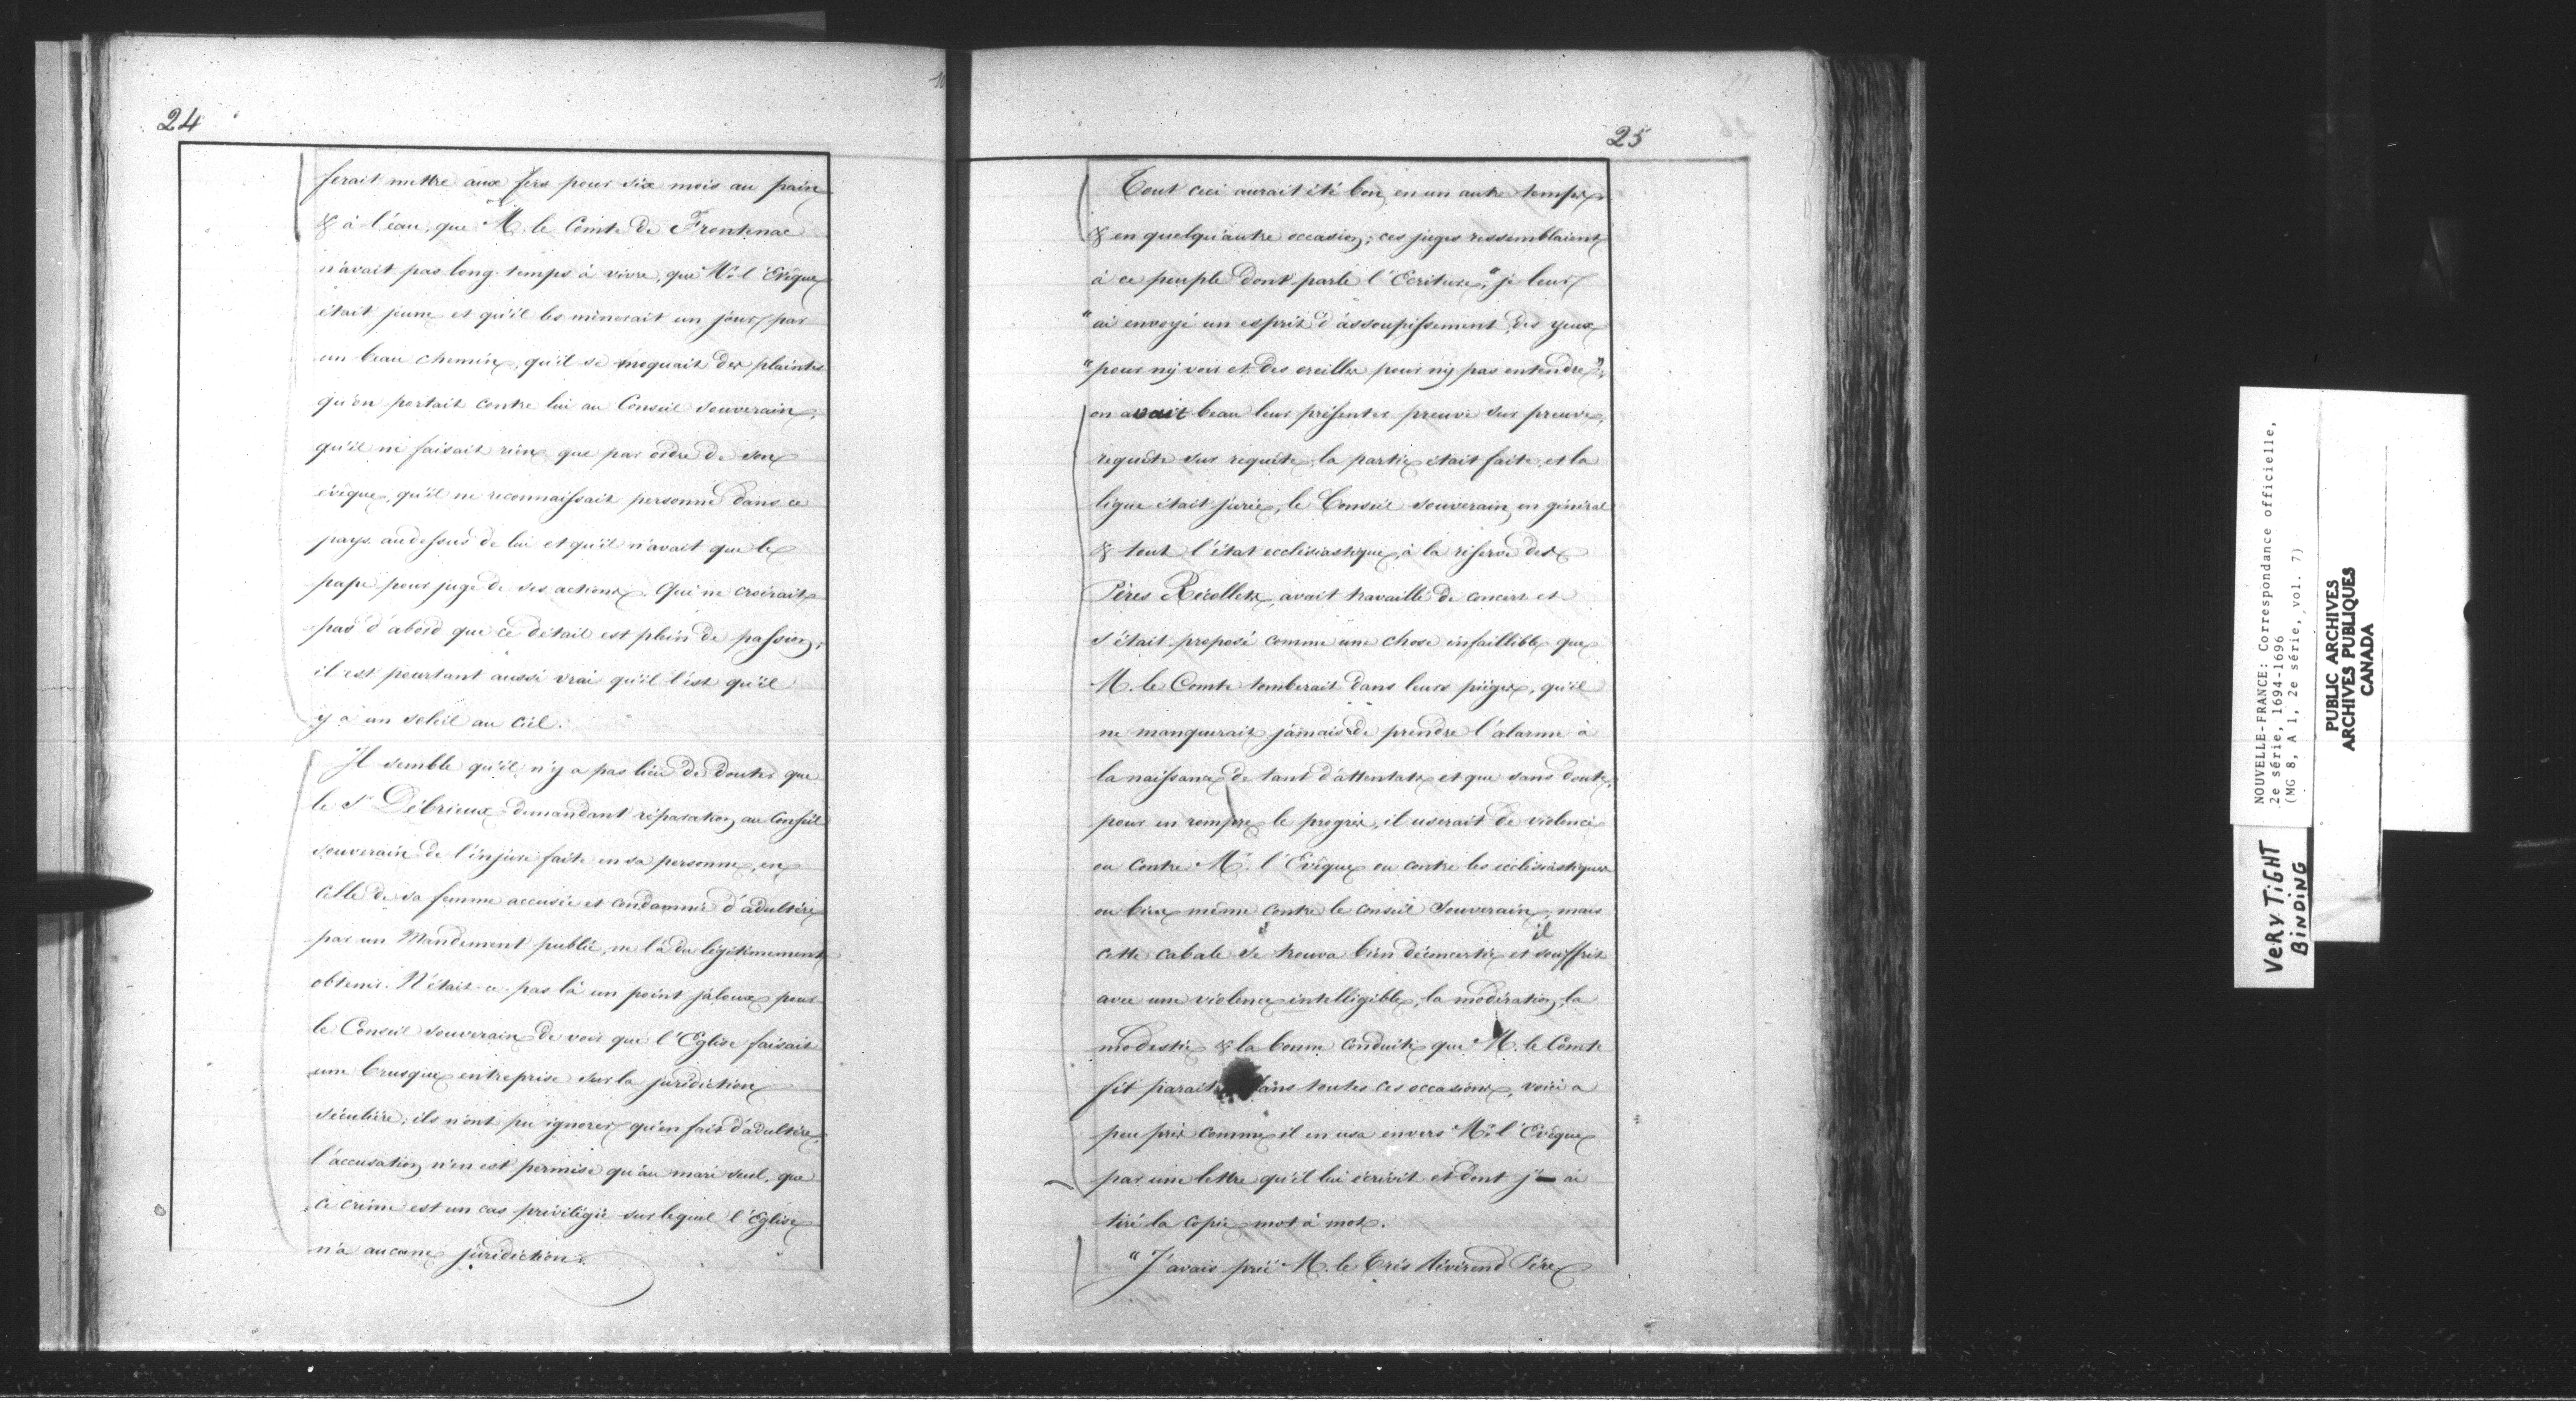 24
ferait mettre aux fers pour six mois au pain
& à l'eau, que M. le Comte de Frontenac
n'avait pas long-temps à vivre, que Mr l'Evêque
était jeune et qu'il les mènerait un jour par
un beau chemin, qu'il se moquait des plaintes
qu'on portait contre lui au Conseil souverain,
qu'il ne faisait rien que par ordre de son
évêque, qu'il ne reconnaissait personne dans ce
pays au dessus de lui et qu'il n'avait que le
pape pour juge de ses actions. Qui ne croirait
pas d'abord que ce détail est plein de passion,
il est pourtant aussi vrai qu'il l'est qu'il
y a un soleil au ciel.
Il semble qu'il n'y a pas lieu de douter que
le Sr Débrieux demandant réparation au Conseil
souverain de l'injure faite en sa personne, en
celle de sa femme accusée et condamnée d'adultère
par un Mandement public, ne l'a du légitimement
obtenir. N'était-ce pas là un point jaloux pour
le Conseil souverain de voir que l'Eglise faisait
une brusque entreprise sur la juridiction
séculière; ils n'ont pu ignorer qu'en fait d'adultère,
l'accusation n'en est permise qu'au mari seul, que
ce crime est un cas privilégié sur lequel l'Eglise
n'a aucune juridiction.
25
Tout ceci aurait été bon en un autre temps
& en quelqu'autre occasion; ces juges ressemblaient
à ce peuple dont parle l'Ecriture, "je leur
"ai envoyé un esprit d'assoupissement, des yeux
"pour n'y voir et des oreilles pour n'y pas entendre",
on avait beau leur présenter preuve sur preuve,
requête sur requête, la partie était faite, et la
ligue était jurée, le Conseil souverain en général
& tout l'état ecclésiastique, à la réserve des
Pères Récollets, avait travaillé de concert et
s'était proposé comme une chose infaillible que
M. le Comte tomberait dans leurs pièges, qu'il
ne manquerait jamais de prendre l'alarme à
la naissance de tant d'attentats et que sans doute,
pour en rompre le progrès, il userait de violence
ou contre Mr. l'Evêque ou contre les ecclésiastiques
ou bien même contre le conseil souverain, mais
cette cabale se trouva bien déconcertée et il souffrit
avec une violence intelligible, la modération, la
modestie & la bonne conduite que M. le Comte
fit parait dans toutes ces occasions, voici a
peu près comme il en usa envers Mr l'Evêque
par une lettre qu'il lui écrivit et dont j' ai
tiré la copie mot à mot.
"J'avais prié M. le Très Révérend Père
NOUVELLE-FRANCE: Correspondance officielle,
2e série, 1694-1696
(MG 8, A 1, 2e série, vol. 7)
PUBLIC ARCHIVES
ARCHIVES PUBLIQUES
CANADA
VERY TIGHT
BINDING